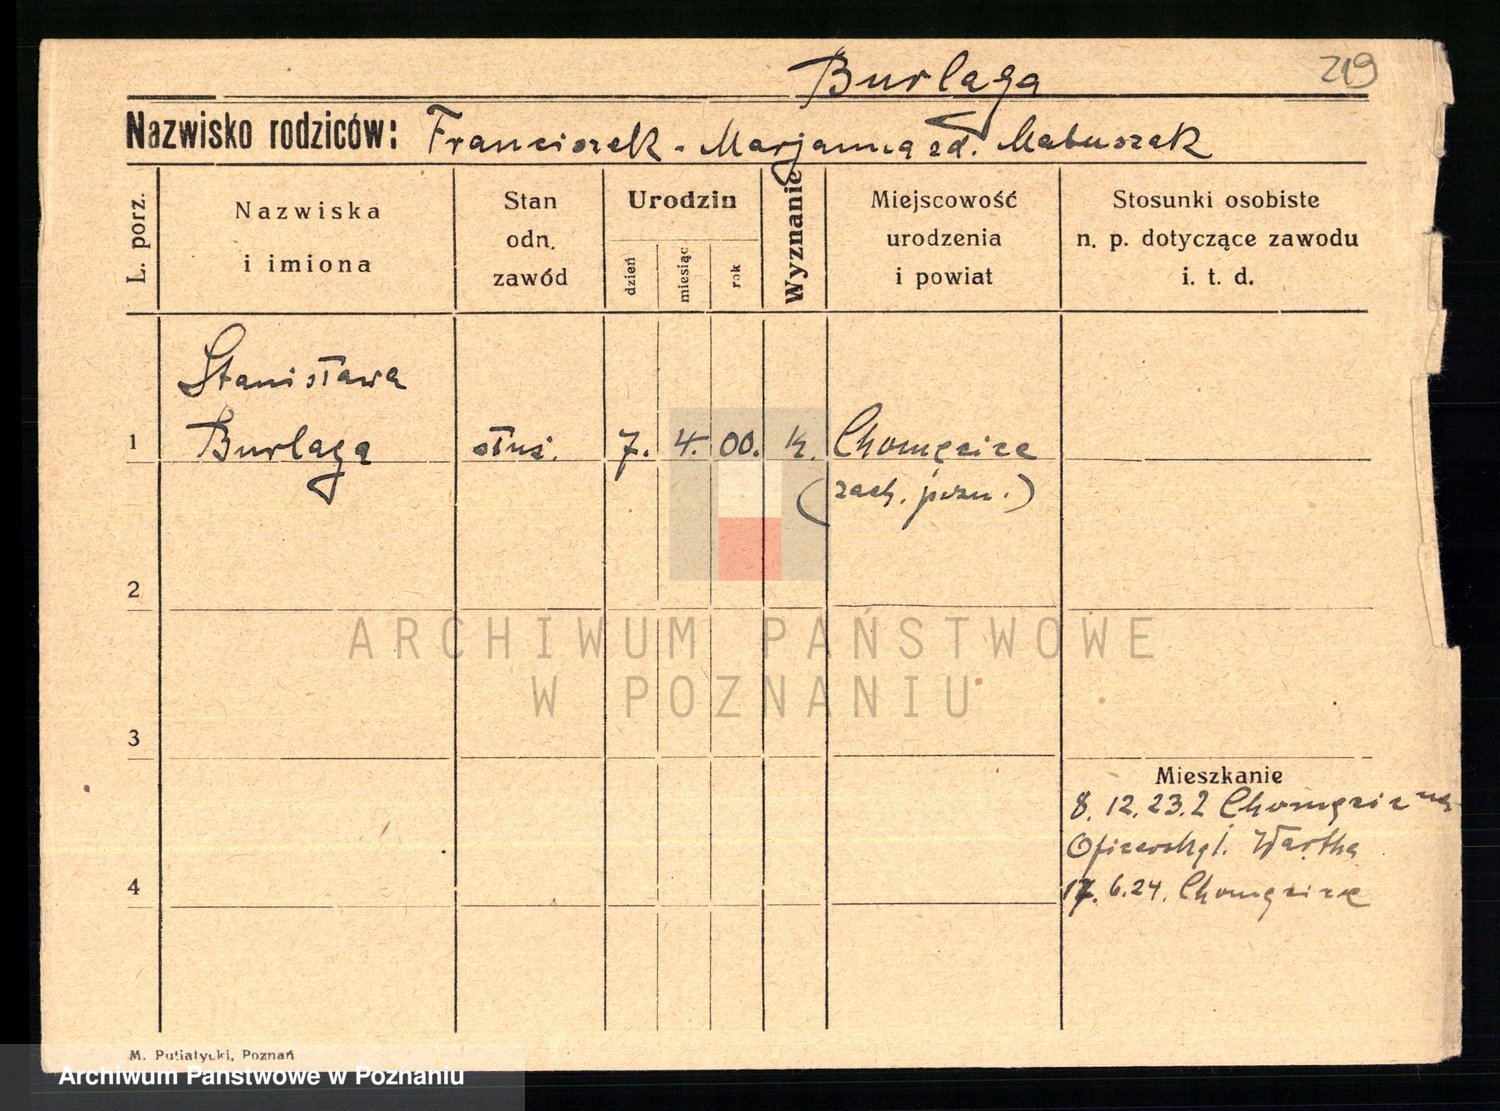 219
Burlaga
Nazwisko rodziców: Franciszek - Marjanna zd. Matuszak
L. porz.
Nazwiska
i imiona
Stan
odn.
zawód
Urodzin
dzień
miesiąc
rok
Wyznanie
Miejscowość
urodzenia
i powiat
Stosunki osobiste
n. p. dotyczące zawodu
i. t. d.
Stanisława
1 Burlaga służ. 7. 4. 00. k. Chomęcice
(zach. pozn.)
2
ARCHIWUM PAŃSTWOWE
W POZNANIU
3
Mieszkanie
8. 12. 23. z Chomęcic
Wartha
4
17. 6. 24. Chomęcice
M. Putiatycki, Poznań
Archiwum Państwowe w Poznaniu